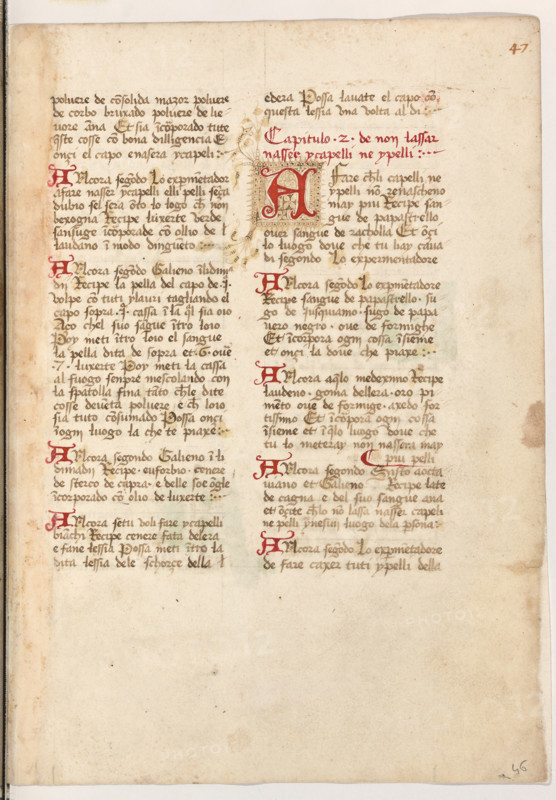 47
poluere de cōsolida mazor poluere
de corbo bruxado poluere de lie
uore ana Et sia īcorporado tute
q̄ste cosse cō bona dilligencia E
onci el capo e nasera ycapeli :
Alcora segōdo Lo expimetador
afare nasser ycapelli elli pelli seza
dubio sel sera oto lo logo ch nō
bexogna Recipe luxerte verde
sansuge īcorporade cō olio de l
laudano ī modo dinguēto :
Alcora segōdo Galieno
Recipe la pella del capo de .j.
volpe cō tuti ylauri tagliando el
capo sopra .j. cassa ī la q̄l sia oio
Aço chel suo sague ītro loio
Poy meti ītro loio el sangue
la pella dita de sopra et .6. oue
7. luxerte Poy meti la cassa
al fuogo senpre mescolando con
la spatolla fina tāto chle dite
cosse deuēta poluere e ch loio
sia tuto cōsumado Possa onci
īogni luogo la che te piaxe :
Alcora segondo Galieno
Recipe euforbio . cenere
de sterco de capra . e delle soe ōgle
īcorporado cō olio de luxerte :
Alcora setu voli fare ycapelli
biāchi Recipe cenere fata delera
e fane lessia Possa meti ītro la
dita lessia dele schorçe della l
edera Possa lauate el capo cō
questa lessia vna volta al di :
Capitulo . 2 . de non lassar
nasser ycapelli ne ypelli :
A ffare chli capelli ne
ypelli nō renascheno
may piu Recipe san
gue de papastrello
ouer sangue de racholla Et ōci
lo luogo doue che tu hay caua
di segondo Lo experimentadore
Alcora segōdo Lo expmētadore
Recipe sangue de papastrello . su
go de iusquiamo . sugo de papa
uero negro . oue de formighe
Et īcorpora ogni cossa īsieme
et onçi la doue che piaxe :
Alcora aq̄lo medeximo Recipe
laudeno . goma dellera . oro pi
mēto oue de formige . axedo for
tissimo Et īcorpora ogni cossa
īsieme et ī q̄lo luogo doue che
tu lo meteray non nassera may
piu pelli
Alcora segondo
uiano et Galieno Recipe late
de cagna e del suo sangue ana
et ōçite chlo nō lassa nasser capeli
ne pelli ynesun luogo dela psona :
Alcora segōdo Lo expmetadore
de fare caxer tuti ypelli della
46